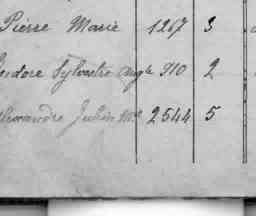 Pierre Marie 1267 3
Isidore Sylvestre Ang le 910 2
Alexandre Julien Mel 2544 5